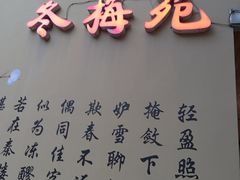 冬梅苑
轻盈照
掩敛下
妒雪聊
欺春不
偶同佳客
似为冻醪
若在秦楼